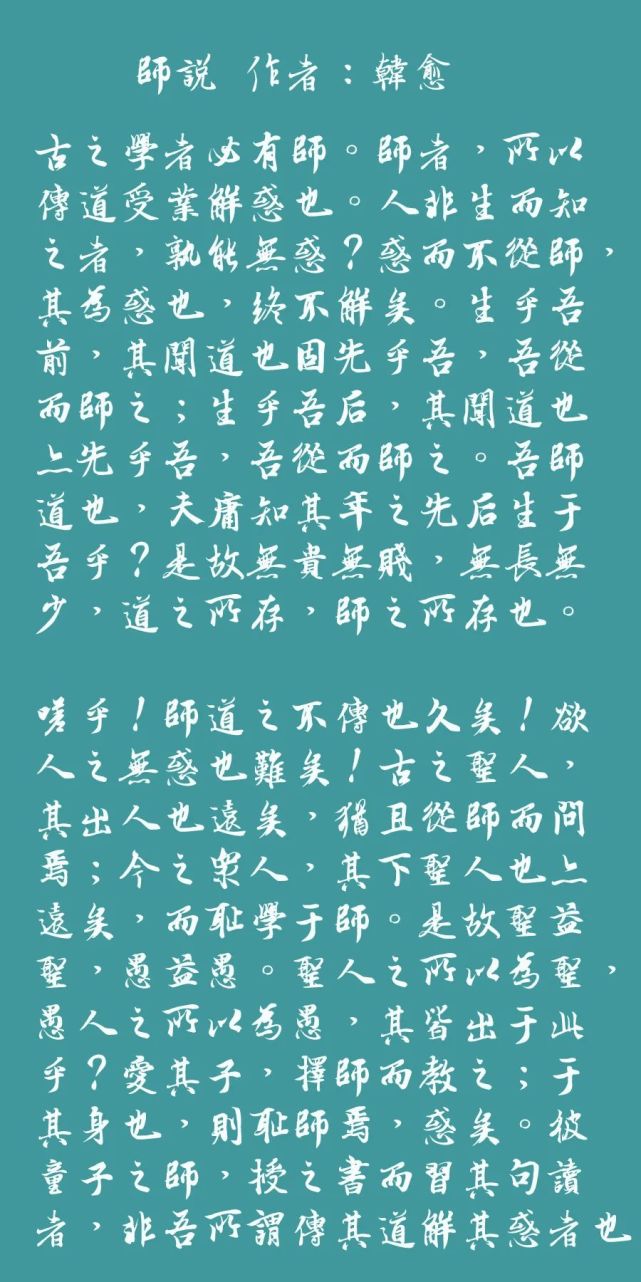 師説 作者：韓愈
古之學者必有師。師者，所以
傳道受業解惑也。人非生而知
之者，孰能無惑？惑而不從師，
其為惑也，終不解矣。生乎吾
前，其聞道也固先乎吾，吾從
而師之；生乎吾后，其聞道也
亦先乎吾，吾從而師之。吾師
道也，夫庸知其年之先后生于
吾乎？是故無貴無賤，無長無
少，道之所存，師之所存也。
嗟乎！師道之不傳也久矣！欲
人之無惑也難矣！古之聖人，
其出人也遠矣，猶且從師而問
焉；今之衆人，其下聖人也亦
遠矣，而耻學于師。是故聖益
聖，愚益愚。聖人之所以為聖，
愚人之所以為愚，其皆出于此
乎？愛其子，擇師而教之；于
其身也，則耻師焉，惑矣。彼
童子之師，授之書而習其句讀
者，非吾所謂傳其道解其惑者也